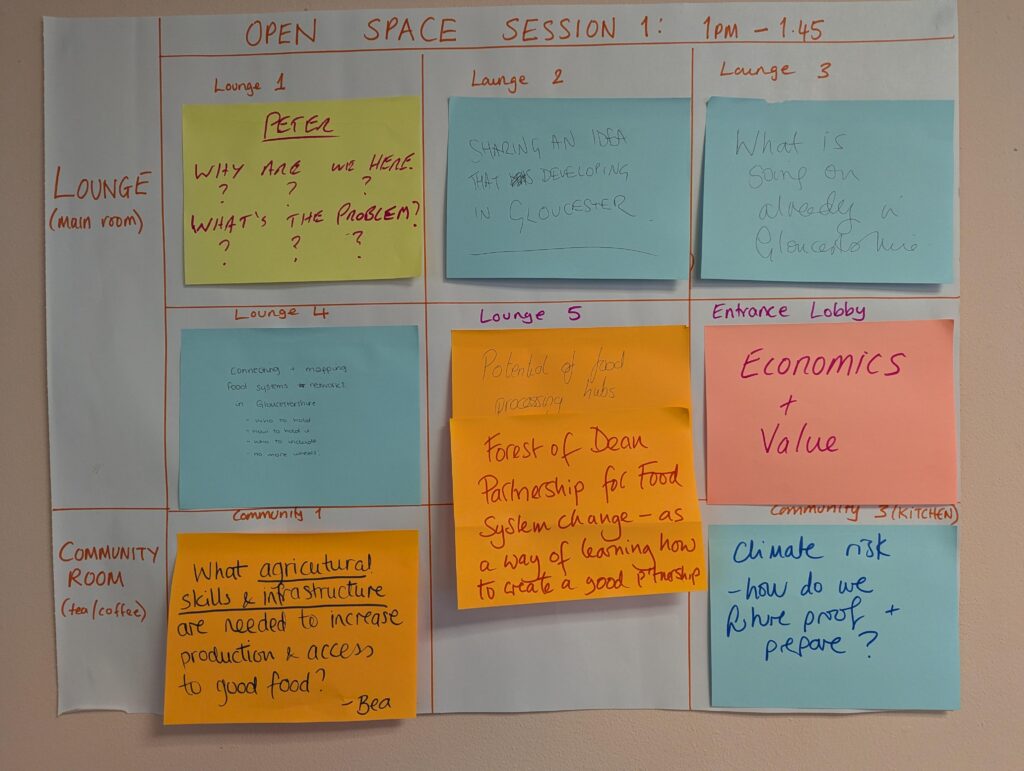 OPEN SPACE SESSION 1: 1PM - 1.45
LOUNGE
(main room)
Lounge 1
PETER
WHY ARE WE HERE.
? ? ?
WHAT'S THE PROBLEM?
? ? ?
Lounge 2
SHARING AN IDEA
THAT DEVELOPING
IN GLOUCESTER
Lounge 3
What is
going on
already in
Gloucestershire
Lounge 4
Connecting + mapping
food systems networks
in Gloucestershire
- who to hold
- how to hold it
- who to include
- no more wheels
Lounge 5
Potential of food
processing hubs
Forest of Dean
Partnership for Food
System change - as
a way of learning how
to create a good ptnership
Entrance Lobby
ECONOMICS
+
Value
COMMUNITY
ROOM
(tea/coffee)
Community 1
What agricutural
skills & infrastructure
are needed to increase
production & access
to good food?
- Bea
Community 3 (KITCHEN)
Climate risk
- how do we
future proof +
prepare?